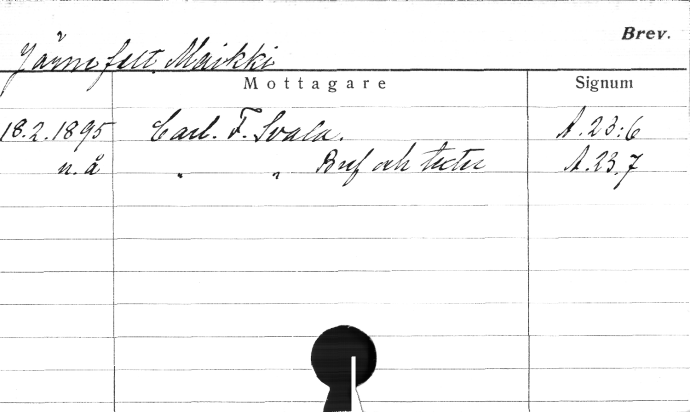 Brev.
Järnefelt Maikki
Mottagare Signum
18.2.1895 Carl. F. Svala. A.23:6
u. å " " Bref och texter A.23.7